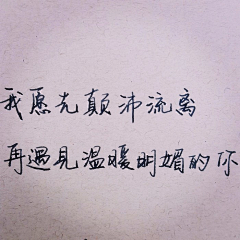 我愿先颠沛流离
再遇见温暖明媚的你